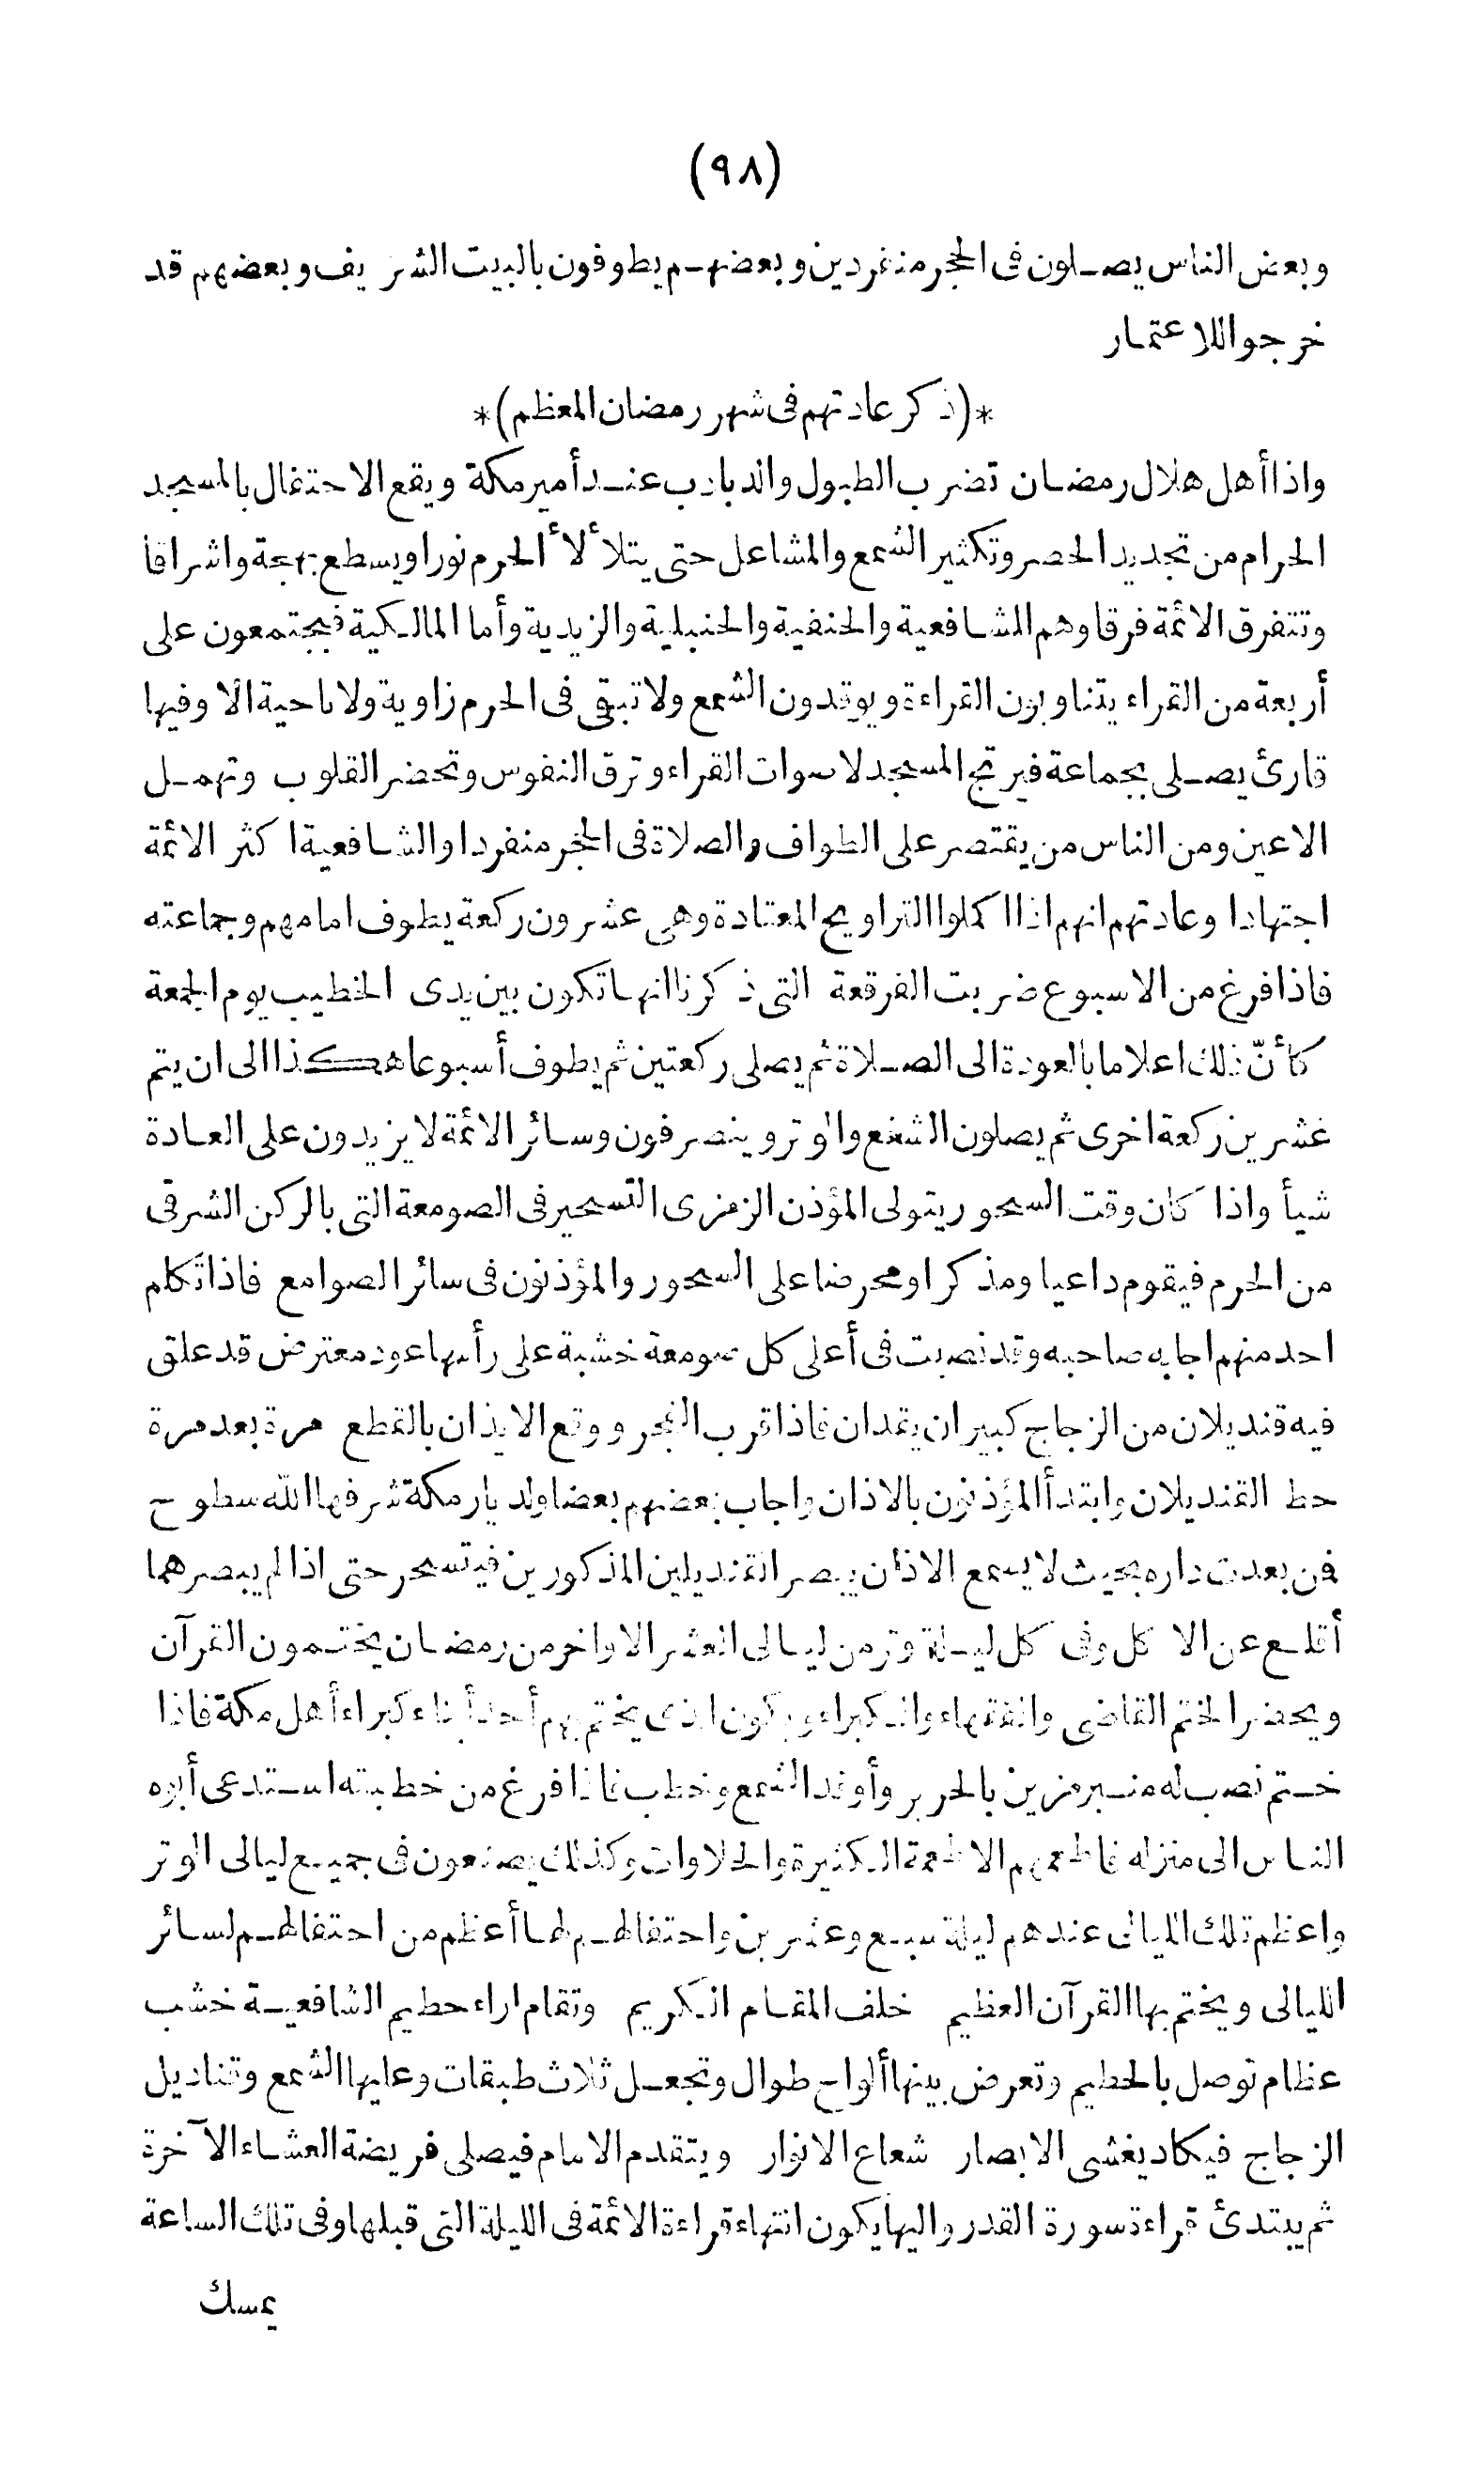 (٩٨)
وبعض الناس يصلون فى الحجر منفردين وبعضهم يطوفون بالبيت الشريف وبعضهم قد
خرجوا للاعتمار
*(ذكر عادتهم فى شهر رمضان المعظم)*
واذا أهل هلال رمضان تضرب الطبول والدبادب عند أمير مكة ويقع الاحتفال بالمسجد
الحرام من تجديد الحصر وتكثير الشمع والمشاعل حتى يتلألأ الحرم نورا ويسطع بهجة واشراقا
وتتفرق الائمة فرقا وهم الشافعية والحنفية والحنبلية والزيدية وأما المالكية فيجتمعون على
أربعة من القراء يتناوبون القراءة ويوقدون الشمع ولا تبقى فى الحرم زاوية ولا ناحية الا وفيها
قارئ يصلى بجماعة فيرتج المسجد لاصوات القراء وترق النفوس وتحضر القلوب وتهمل
الاعين ومن الناس من يقتصر على الطواف والصلاة فى الحجر منفردا والشافعية اكثر الائمة
اجتهادا وعادتهم انهم اذا اكملوا التراويح المعتادة وهى عشرون ركعة يطوف امامهم وجماعته
فاذا فرغ من الاسبوع ضربت الفرقعة التى ذكرنا انها تكون بين يدى الخطيب يوم الجمعة
كأنّ ذلك اعلاما بالعودة الى الصلاة ثم يصلى ركعتين ثم يطوف أسبوعا هكذا الى ان يتم
عشرين ركعة اخرى ثم يصلون الشفع والوتر وينصرفون وسائر الائمة لا يزيدون على العادة
شيأ واذا كان وقت السحور يتولى المؤذن الزمزمى التسحير فى الصومعة التى بالركن الشرقى
من الحرم فيقوم داعيا ومذكرا ومحرضا على السحور والمؤذنون فى سائر الصوامع فاذا تكلم
احد منهم اجابه صاحبه وقد نصبت فى أعلى كل صومعة خشبة على رأسها عود معترض قد علق
فيه قنديلان من الزجاج كبيران يقدان فاذا قرب الفجر ووقع الايذان بالقطع مرة بعد مرة
حط القنديلان وابتدأ المؤذنون بالاذان واجاب بعضهم بعضا ولديار مكة شرفها الله سطوح
فمن بعدت داره بحيث لا يسمع الاذان يبصر القنديلين المذكورين فيتسحر حتى اذا لم يبصرهما
أقلع عن الاكل وفى كل ليلة وتر من ليالى العشر الاواخر من رمضان يختمون القرآن
ويحضر الختم القاضى والفقهاء والكبراء ويكون الذى يختم بهم أحد أبناء كبراء أهل مكة فاذا
ختم نصب له منبر مزين بالحرير وأوقد الشمع وخطب فاذا فرغ من خطبته استدعى أبوه
الناس الى منزله فاطعمهم الاطعمة الكثيرة والحلاوات وكذلك يصنعون فى جميع ليالى الوتر
واعظم تلك الليالى عندهم ليلة سبع وعشرين واحتفالهم لها أعظم من احتفالهم لسائر
الليالى ويختم بها القرآن العظيم خلف المقام الكريم وتقام ازاء حطيم الشافعية خشب
عظام توصل بالحطيم وتعرض بينها ألواح طوال وتجعل ثلاث طبقات وعليها الشمع وقناديل
الزجاج فيكاد يغشى الابصار شعاع الانوار ويتقدم الامام فيصلى فريضة العشاء الآخرة
ثم يبتدئ قراءة سورة القدر واليها يكون انتهاء قراءة الائمة فى الليلة التى قبلها وفى تلك الساعة
يمسك